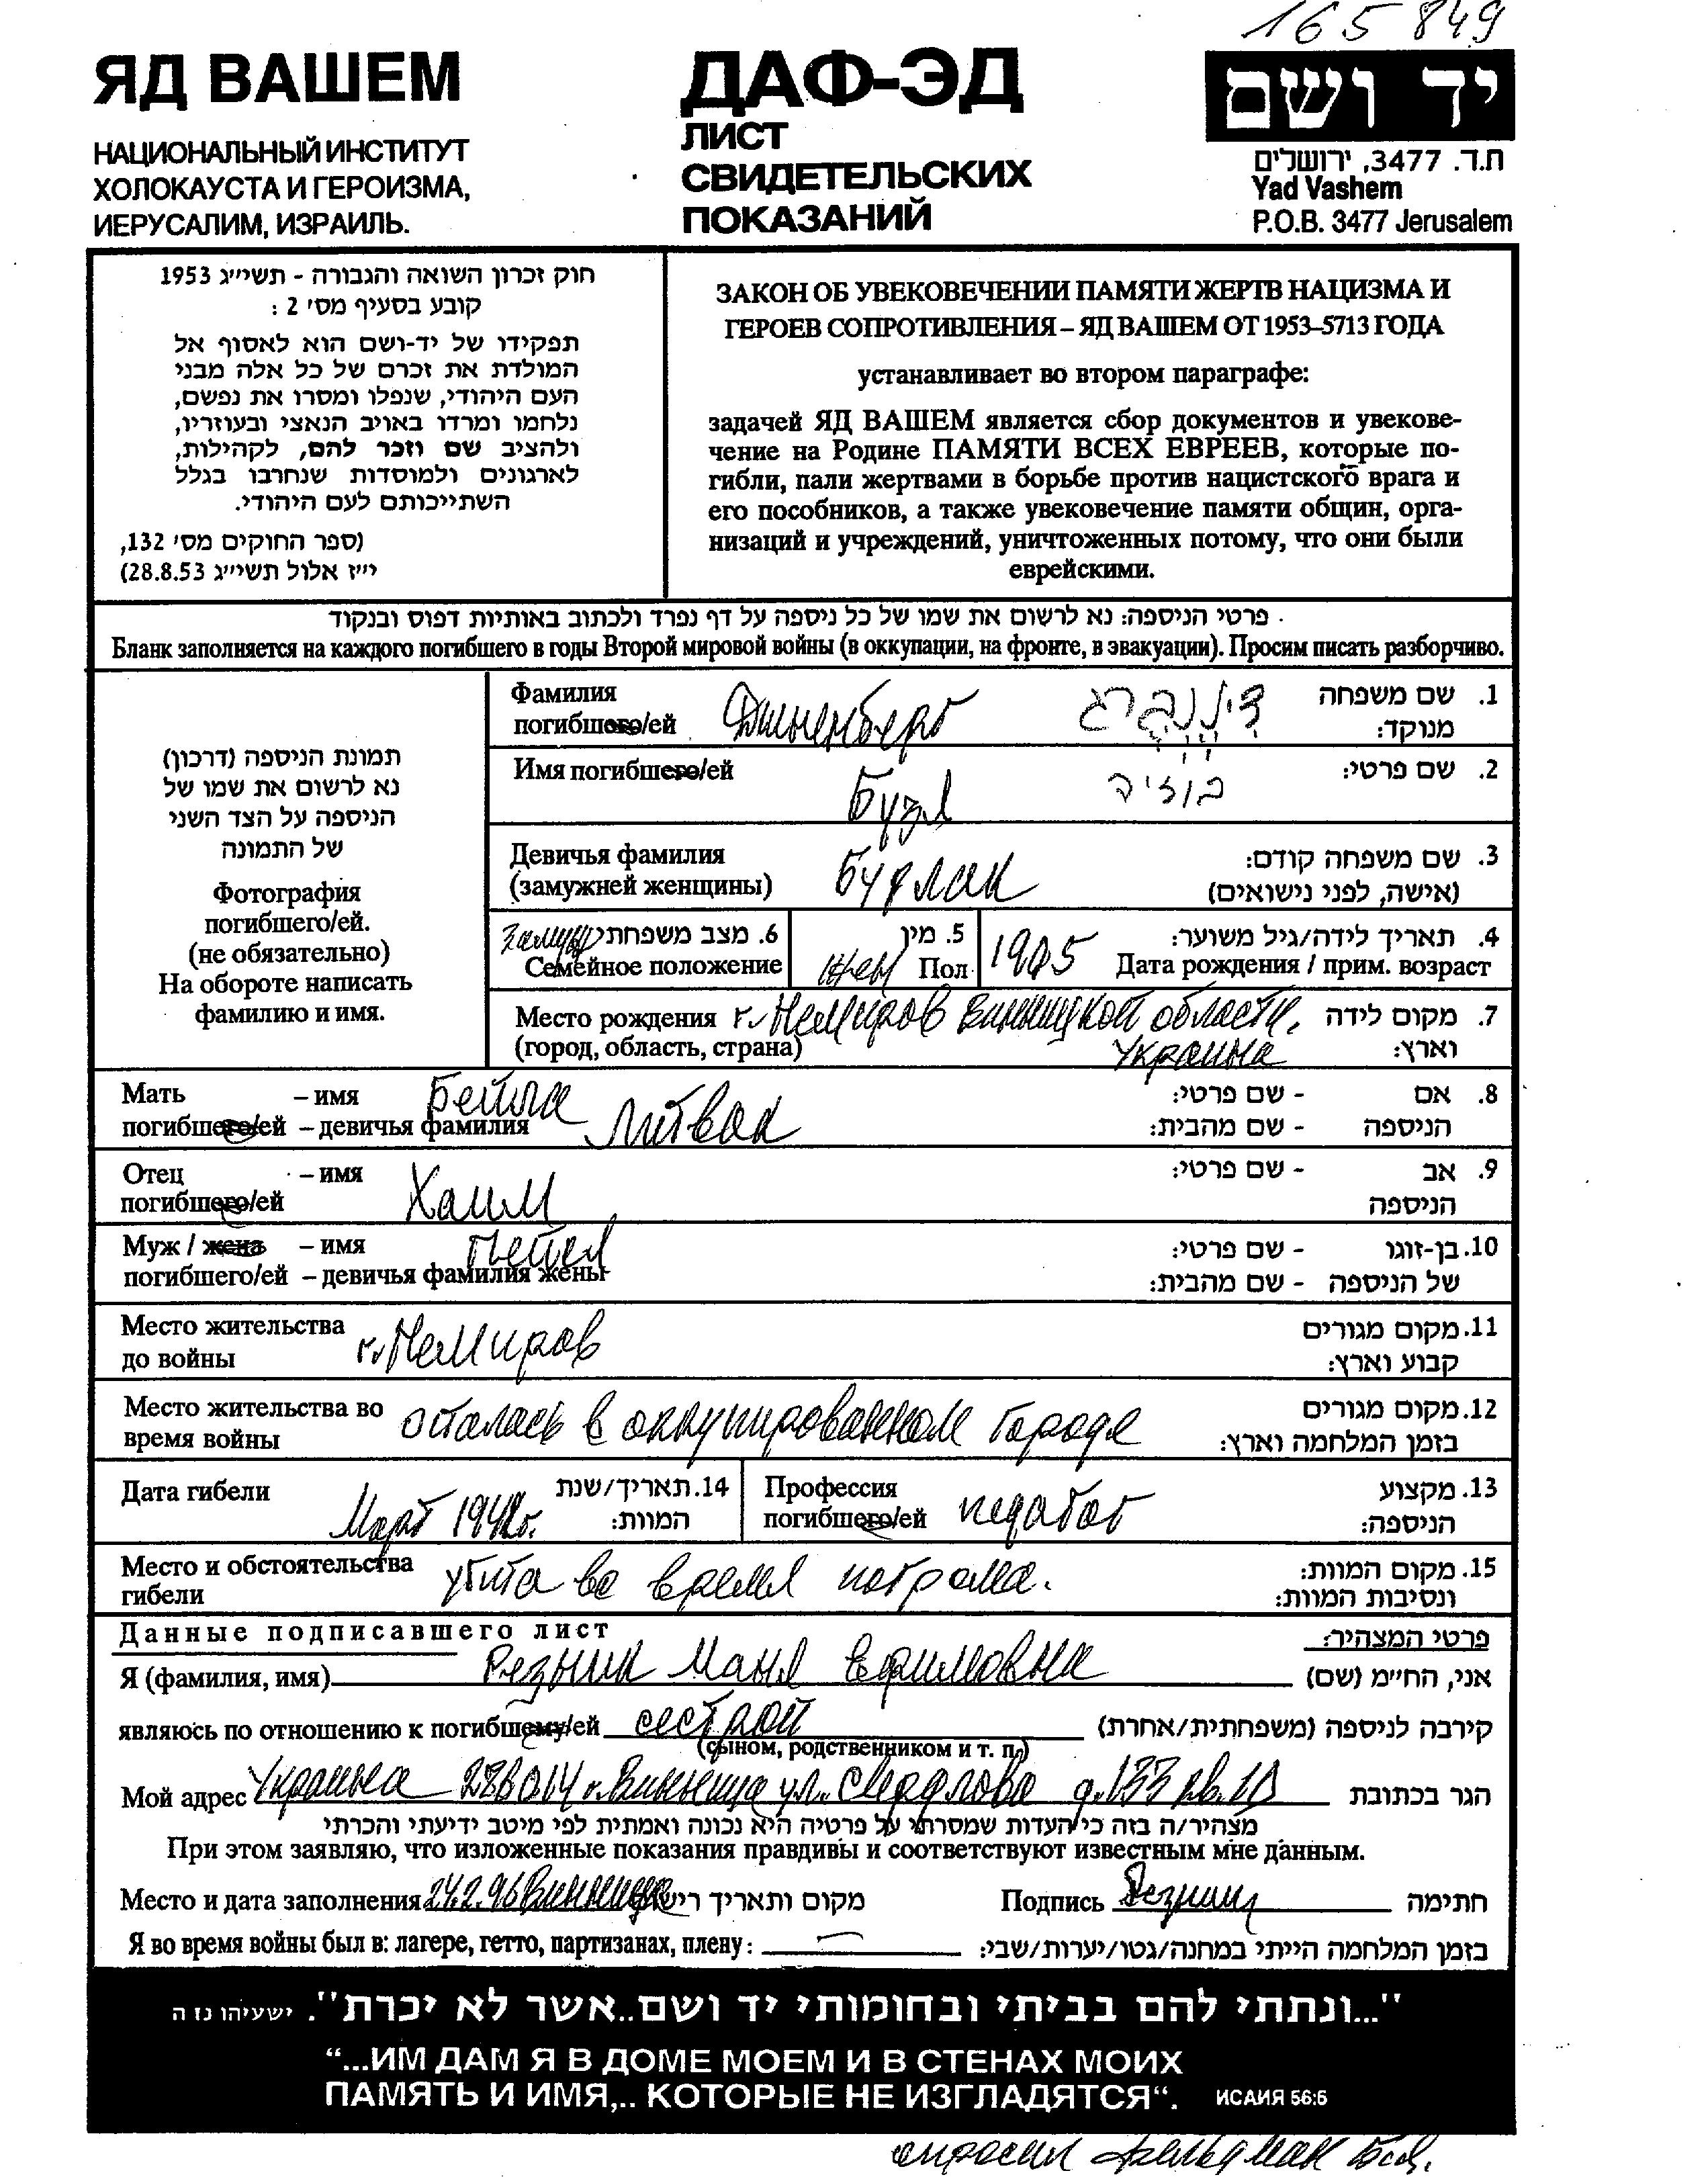 165849
ЯД ВАШЕМ
НАЦИОНАЛЬНЫЙ ИНСТИТУТ
ХОЛОКАУСТА И ГЕРОИЗМА,
ИЕРУСАЛИМ, ИЗРАИЛЬ.
ДАФ-ЭД
ЛИСТ
СВИДЕТЕЛЬСКИХ
ПОКАЗАНИЙ
יד ושם
ת.ד. 3477, ירושלים
Yad Vashem
P.O.B. 3477 Jerusalem
חוק זכרון השואה והגבורה - תשי״ג 1953
קובע בסעיף מס׳ 2 :
תפקידו של יד-ושם הוא לאסוף אל
המולדת את זכרם של כל אלה מבני
העם היהודי, שנפלו ומסרו את נפשם,
נלחמו ומרדו באויב הנאצי ובעוזריו,
ולהציב שם וזכר להם, לקהילות,
לארגונים ולמוסדות שנחרבו בגלל
השתייכותם לעם היהודי.
(ספר החוקים מס׳ 132,
י״ז אלול תשי״ג 28.8.53)
ЗАКОН ОБ УВЕКОВЕЧЕНИИ ПАМЯТИ ЖЕРТВ НАЦИЗМА И
ГЕРОЕВ СОПРОТИВЛЕНИЯ – ЯД ВАШЕМ ОТ 1953–5713 ГОДА
устанавливает во втором параграфе:
задачей ЯД ВАШЕМ является сбор документов и увекове-
чение на Родине ПАМЯТИ ВСЕХ ЕВРЕЕВ, которые по-
гибли, пали жертвами в борьбе против нацистского врага и
его пособников, а также увековечение памяти общин, орга-
низаций и учреждений, уничтоженных потому, что они были
еврейскими.
פרטי הניספה: נא לרשום את שמו של כל ניספה על דף נפרד ולכתוב באותיות דפוס ובנקוד
Бланк заполняется на каждого погибшего в годы Второй мировой войны (в оккупации, на фронте, в эвакуации). Просим писать разборчиво.
תמונת הניספה (דרכון)
נא לרשום את שמו של
הניספה על הצד השני
של התמונה
Фотография
погибшего/ей.
(не обязательно)
На обороте написать
фамилию и имя.
Фамилия שם משפחה .1
погибшего/ей Динненберг דיננברג מנוקד:
Имя погибшего/ей Бузя בוזיה שם פרטי: .2
Девичья фамилия שם משפחה קודם: .3
(замужней женщины) Бурлак (אישה, לפני נישואים)
замуж 6. מצב משפחתי 5. מין 1905 תאריך לידה/גיל משוער: .4
Семейное положение жен Пол Дата рождения / прим. возраст
Место рождения г. Немиров Винницкой области, מקום לידה .7
(город, область, страна) Украина וארץ:
Мать – имя Бейла - שם פרטי: אם .8
погибшего/ей – девичья фамилия Литвак - שם מהבית: הניספה
Отец – имя Хаим - שם פרטי: אב .9
погибшего/ей הניספה
Муж / жена – имя - שם פרטי: בן-זוגו .10
погибшего/ей – девичья фамилия жены - שם מהבית: של הניספה
Место жительства г. Немиров מקום מגורים .11
до войны קבוע וארץ:
Место жительства во осталась в оккупированном городе מקום מגורים .12
время войны בזמן המלחמה וארץ:
Дата гибели Март 1942г. 14. תאריך/שנת המוות:
Профессия погибшего/ей педагог מקצוע .13 הניספה:
Место и обстоятельства убита во время погрома. מקום המוות: .15
гибели ונסיבות המוות:
Данные подписавшего лист פרטי המצהיר:
Я (фамилия, имя) Резник Маня Ефимовна אני, החי״מ (שם)
являюсь по отношению к погибшему/ей сестрой קירבה לניספה (משפחתית/אחרת)
(сыном, родственником и т. п.)
Мой адрес Украина 286014 г. Винница ул. Свердлова д.133 кв.10 הגר בכתובת
מצהיר/ה בזה כי העדות שמסרתי על פרטיה היא נכונה ואמתית לפי מיטב ידיעתי והכרתי
При этом заявляю, что изложенные показания правдивы и соответствуют известным мне данным.
Место и дата заполнения 24.2.96 Винница מקום ותאריך רישום Подпись Резник חתימה
Я во время войны был в: лагере, гетто, партизанах, плену: — בזמן המלחמה הייתי במחנה/גטו/יערות/שבי:
"...ונתתי להם בביתי ובחומותי יד ושם..אשר לא יכרת". ישעיהו נז ה
“...ИМ ДАМ Я В ДОМЕ МОЕМ И В СТЕНАХ МОИХ
ПАМЯТЬ И ИМЯ,.. КОТОРЫЕ НЕ ИЗГЛАДЯТСЯ“. ИСАИЯ 56:5
опросил Фельдман